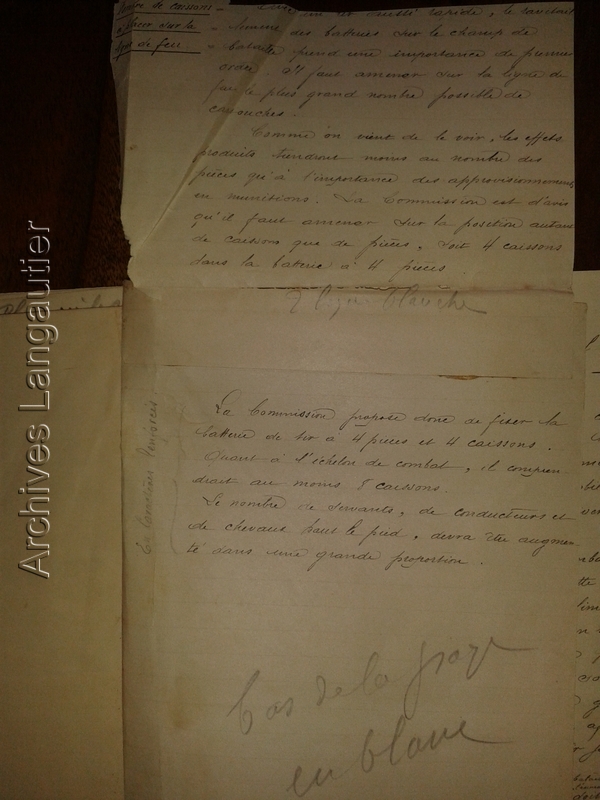 de caissons
à placer sur la
ligne de feu.
tir aussi rapide, le ravitail
lement des batteries sur le champ de
bataille prend une importance de premier
ordre. Il faut amener sur la ligne de
feu le plus grand nombre possible de
cartouches.
Comme on vient de le voir, les effets
produits tiendront moins au nombre des
pièces qu'à l'importance des approvisionnements
en munitions. La Commission est d'avis
qu'il faut amener sur la position autant
de caissons que de pièces, soit 4 caissons
dans la batterie à 4 pièces
2 lignes blanche
La Commission propose donc de fixer la
batterie de tir à 4 pièces et 4 caissons.
Quant à l'échelon de combat, il compren
drait au moins 8 caissons.
Le nombre de servants, de conducteurs et
de chevaux haut le pied, devra être augmen
té dans une grande proportion.
bas de la page
en blanc
Archives Langautier